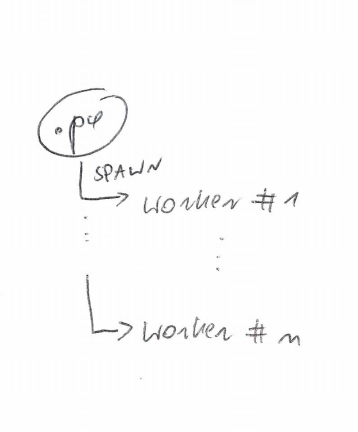 .py
SPAWN
worker #1
worker #n